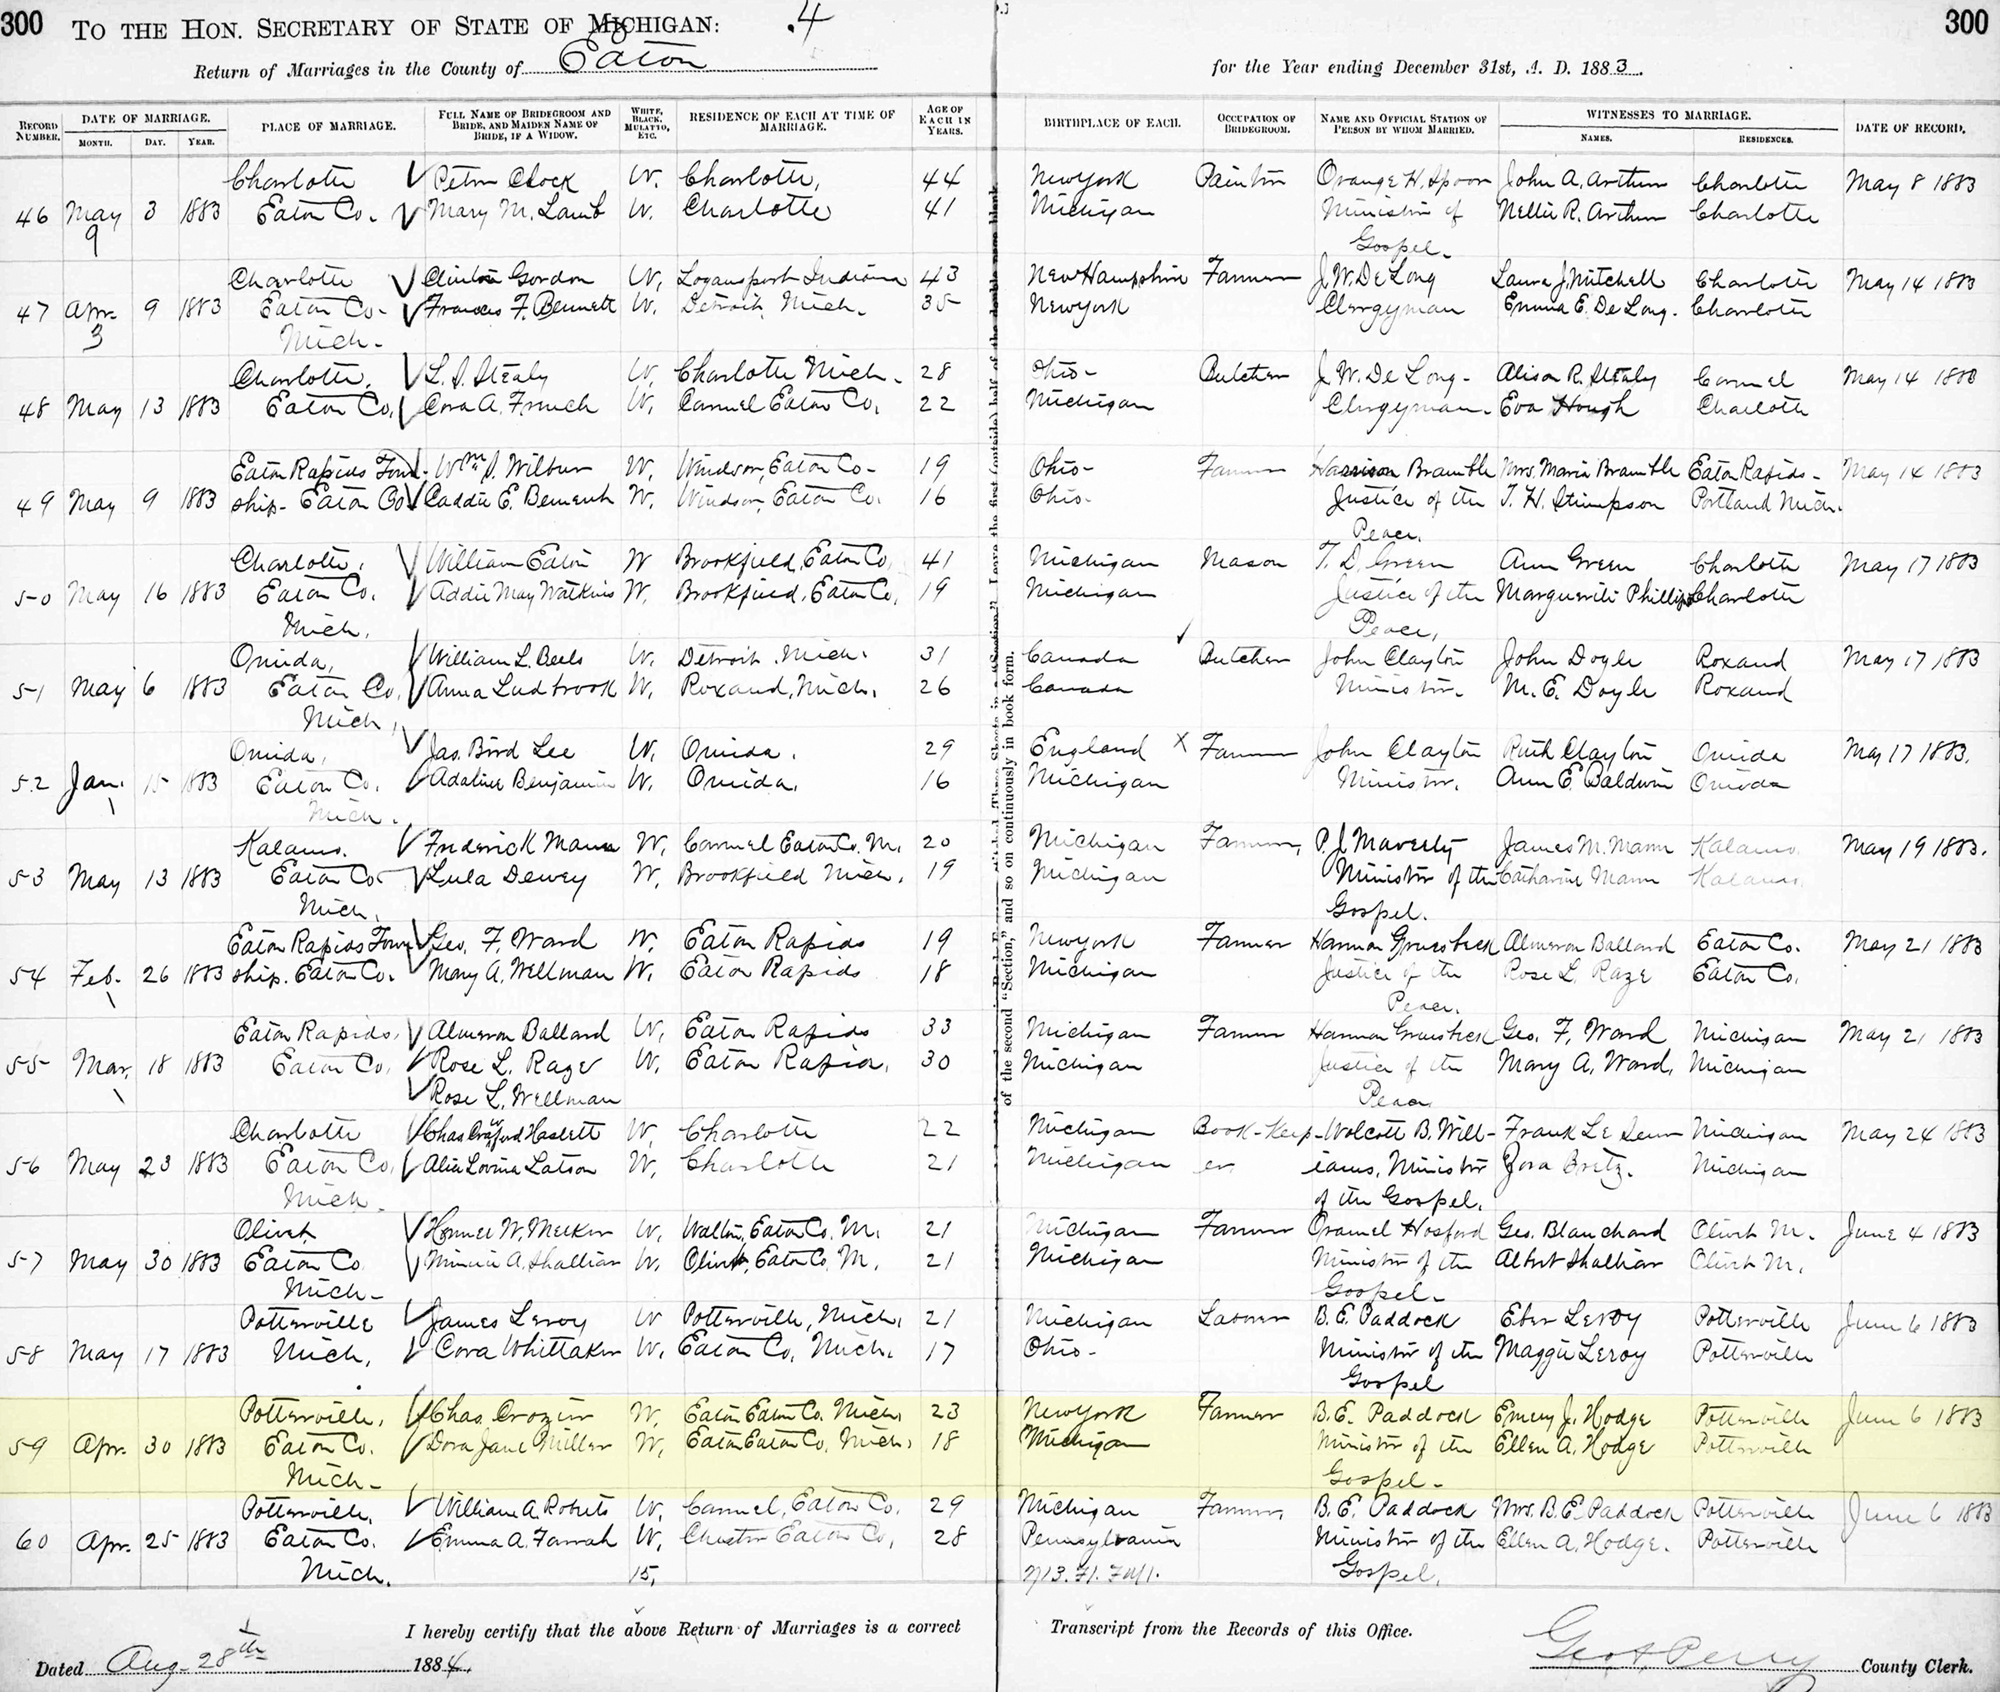 300 TO THE HON. SECRETARY OF STATE OF MICHIGAN: .4 300
Return of Marriages in the County of Eaton for the Year ending December 31st, A. D. 1883.
RECORD NUMBER. DATE OF MARRIAGE. MONTH. DAY. YEAR. PLACE OF MARRIAGE. FULL NAME OF BRIDEGROOM AND BRIDE, AND MAIDEN NAME OF BRIDE, IF A WIDOW. WHITE, BLACK, MULATTO, ETC. RESIDENCE OF EACH AT TIME OF MARRIAGE. AGE OF EACH IN YEARS. BIRTHPLACE OF EACH. OCCUPATION OF BRIDEGROOM. NAME AND OFFICIAL STATION OF PERSON BY WHOM MARRIED. WITNESSES TO MARRIAGE. NAMES. RESIDENCES. DATE OF RECORD.
Charlotte Peter Clock W. Charlotte, 44 New York Painter Orange H. Spoor John A. Arthur Charlotte May 8 1883
46 May 3 1883 Eaton Co. Mary M. Lamb W. Charlotte 41 Michigan Minister of Nellie R. Arthur Charlotte
9 Gospel.
Charlotte Clinton Gordon W. Logansport Indiana 43 New Hampshire Farmer J. W. De Long Laura J. Mitchell Charlotte May 14 1883
47 Apr. 9 1883 Eaton Co. Frances F. Bennett W. Detroit, Mich. 35 New York Clergyman Emma E. De Long. Charlotte
3 Mich.
Charlotte, L. S. Stealy W. Charlotte Mich. 28 Ohio Butcher J. W. De Long. Alison R. Stealy Carmel May 14 1883
48 May 13 1883 Eaton Co. Cora A. French W. Carmel Eaton Co. 22 Michigan Clergyman. Eva Hough Charlotte
Eaton Rapids Town- Wm S. Wilbur W. Windsor, Eaton Co. 19 Ohio Farmer Harrison Bramble Mrs. Maria Bramble Eaton Rapids May 14 1883
49 May 9 1883 ship. Eaton Co. Caddie E. Bement W. Windsor, Eaton Co. 16 Ohio Justice of the T. H. Stimpson Portland Mich.
Peace.
Charlotte, William Eaton W Brookfield, Eaton Co. 41 Michigan Mason T. D. Green Ann Green Charlotte May 17 1883
50 May 16 1883 Eaton Co. Addie May Watkins W. Brookfield, Eaton Co. 19 Michigan Justice of the Marguerite Phillips Charlotte
Mich. Peace,
Oneida, William L. Beels W. Detroit, Mich. 31 Canada Butcher John Clayton John Doyle Roxand May 17 1883
51 May 6 1883 Eaton Co. Anna Ludbrook W. Roxand, Mich. 26 Canada Minister. M. E. Doyle Roxand
Mich,
Oneida, Jas. Bird Lee W. Oneida. 29 England X Farmer John Clayton Ruth Clayton Oneida May 17 1883.
52 Jan. 15 1883 Eaton Co. Adaline Benjamin W. Oneida. 16 Michigan Minister. Ann E. Baldwin Oneida
Mich.
Kalamo. Frederick Mann W. Carmel Eaton Co. M. 20 Michigan Farmer, P. J. Maverty James M. Mann Kalamo May 19 1883.
53 May 13 1883 Eaton Co Lula Dewey W. Brookfield Mich. 19 Michigan Minister of the Catharine Mann Kalamo
Mich. Gospel.
Eaton Rapids Town Geo. F. Ward W. Eaton Rapids 19 New York Farmer Harmon Gruesbeck Almeron Ballard Eaton Co. May 21 1883
54 Feb. 26 1883 ship. Eaton Co. Mary A. Wellman W. Eaton Rapids 18 Michigan Justice of the Rose L. Raze Eaton Co.
Peace.
Eaton Rapids, Almeron Ballard W. Eaton Rapids 33 Michigan Farmer Harmon Gruesbeck Geo. F. Ward Michigan May 21 1883
55 Mar. 18 1883 Eaton Co. Rose L. Raze W. Eaton Rapids. 30 Michigan Justice of the Mary A. Ward. Michigan
Rose L. Wellman Peace
Charlotte Chas Crawford Haslett W. Charlotte 22 Michigan Book-Keep- Wolcott B. Will- Frank Michigan May 24 1883
56 May 23 1883 Eaton Co. Alice Lovina Latson W. Charlotte 21 Michigan er. iams, Minister Zora Bretz. Michigan
Mich. of the Gospel.
Olivet, Homer W. Meeker W. Walton, Eaton Co. M. 21 Michigan Farmer Oramel Hosford Geo. Blanchard Olivet M. June 4 1883
57 May 30 1883 Eaton Co Minnie A. W. Olivet, Eaton Co. M. 21 Michigan Minister of the Albert Olivet M.
Mich. Gospel.
Potterville James Leroy W Potterville, Mich. 21 Michigan Laborer B. E. Paddock Eber Leroy Potterville June 6 1883
58 May 17 1883 Mich. Cora Whittaker W. Eaton Co. Mich. 17 Ohio Minister of the Maggie Leroy Potterville
Gospel
Potterville, Chas. Crozier W. Eaton Eaton Co. Mich. 23 New York Farmer B. E. Paddock Emery J. Hodge Potterville June 6 1883
59 Apr. 30 1883 Eaton Co. Dora Jane Miller W. Eaton Eaton Co. Mich. 18 Michigan Minister of the Ellen A. Hodge Potterville
Mich. Gospel.
Potterville, William A. Roberts W. Carmel, Eaton Co. 29 Michigan Farmer, B. E. Paddock Mrs. B. E. Paddock Potterville June 6 1883
60 Apr. 25 1883 Eaton Co. Emma A. Farrah W. Chester Eaton Co. 28 Pensylvania Minister of the Ellen A. Hodge. Potterville
Mich. 15, Gospel.
I hereby certify that the above Return of Marriages is a correct Transcript from the Records of this Office.
Dated Aug. 28th 1884. Geo A Perry County Clerk.
of the second "Section," and so on continuously in book form.